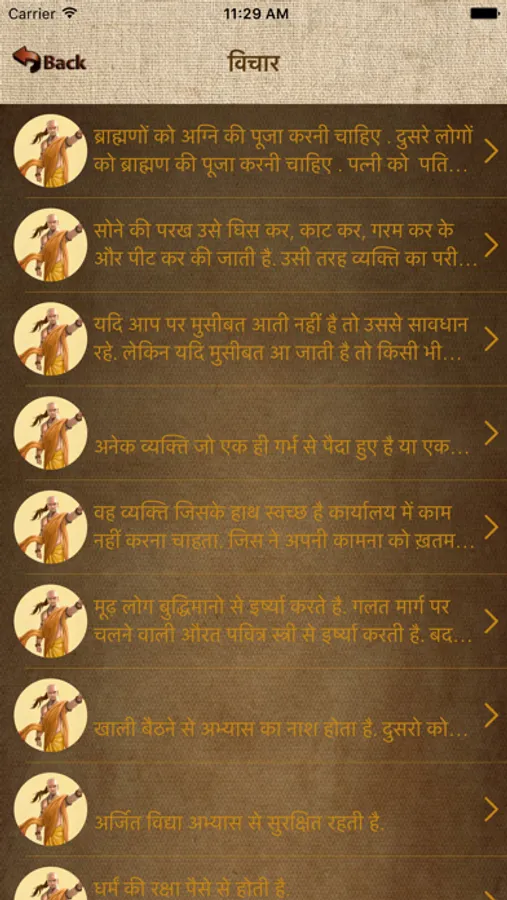 Carrier 11:29 AM
Back विचार
ब्राह्मणों को अग्नि की पूजा करनी चाहिए . दुसरे लोगों
को ब्राह्मण की पूजा करनी चाहिए . पत्नी को पति...
सोने की परख उसे घिस कर, काट कर, गरम कर के
और पीट कर की जाती है. उसी तरह व्यक्ति का परी...
यदि आप पर मुसीबत आती नहीं है तो उससे सावधान
रहे. लेकिन यदि मुसीबत आ जाती है तो किसी भी...
अनेक व्यक्ति जो एक ही गर्भ से पैदा हुए है या एक...
वह व्यक्ति जिसके हाथ स्वच्छ है कार्यालय में काम
नहीं करना चाहता. जिस ने अपनी कामना को ख़तम...
मूढ़ लोग बुद्धिमानो से इर्ष्या करते है. गलत मार्ग पर
चलने वाली औरत पवित्र स्त्री से इर्ष्या करती है. बद...
खाली बैठने से अभ्यास का नाश होता है. दुसरो को...
अर्जित विद्या अभ्यास से सुरक्षित रहती है.
धर्मं की रक्षा पैसे से होती है.